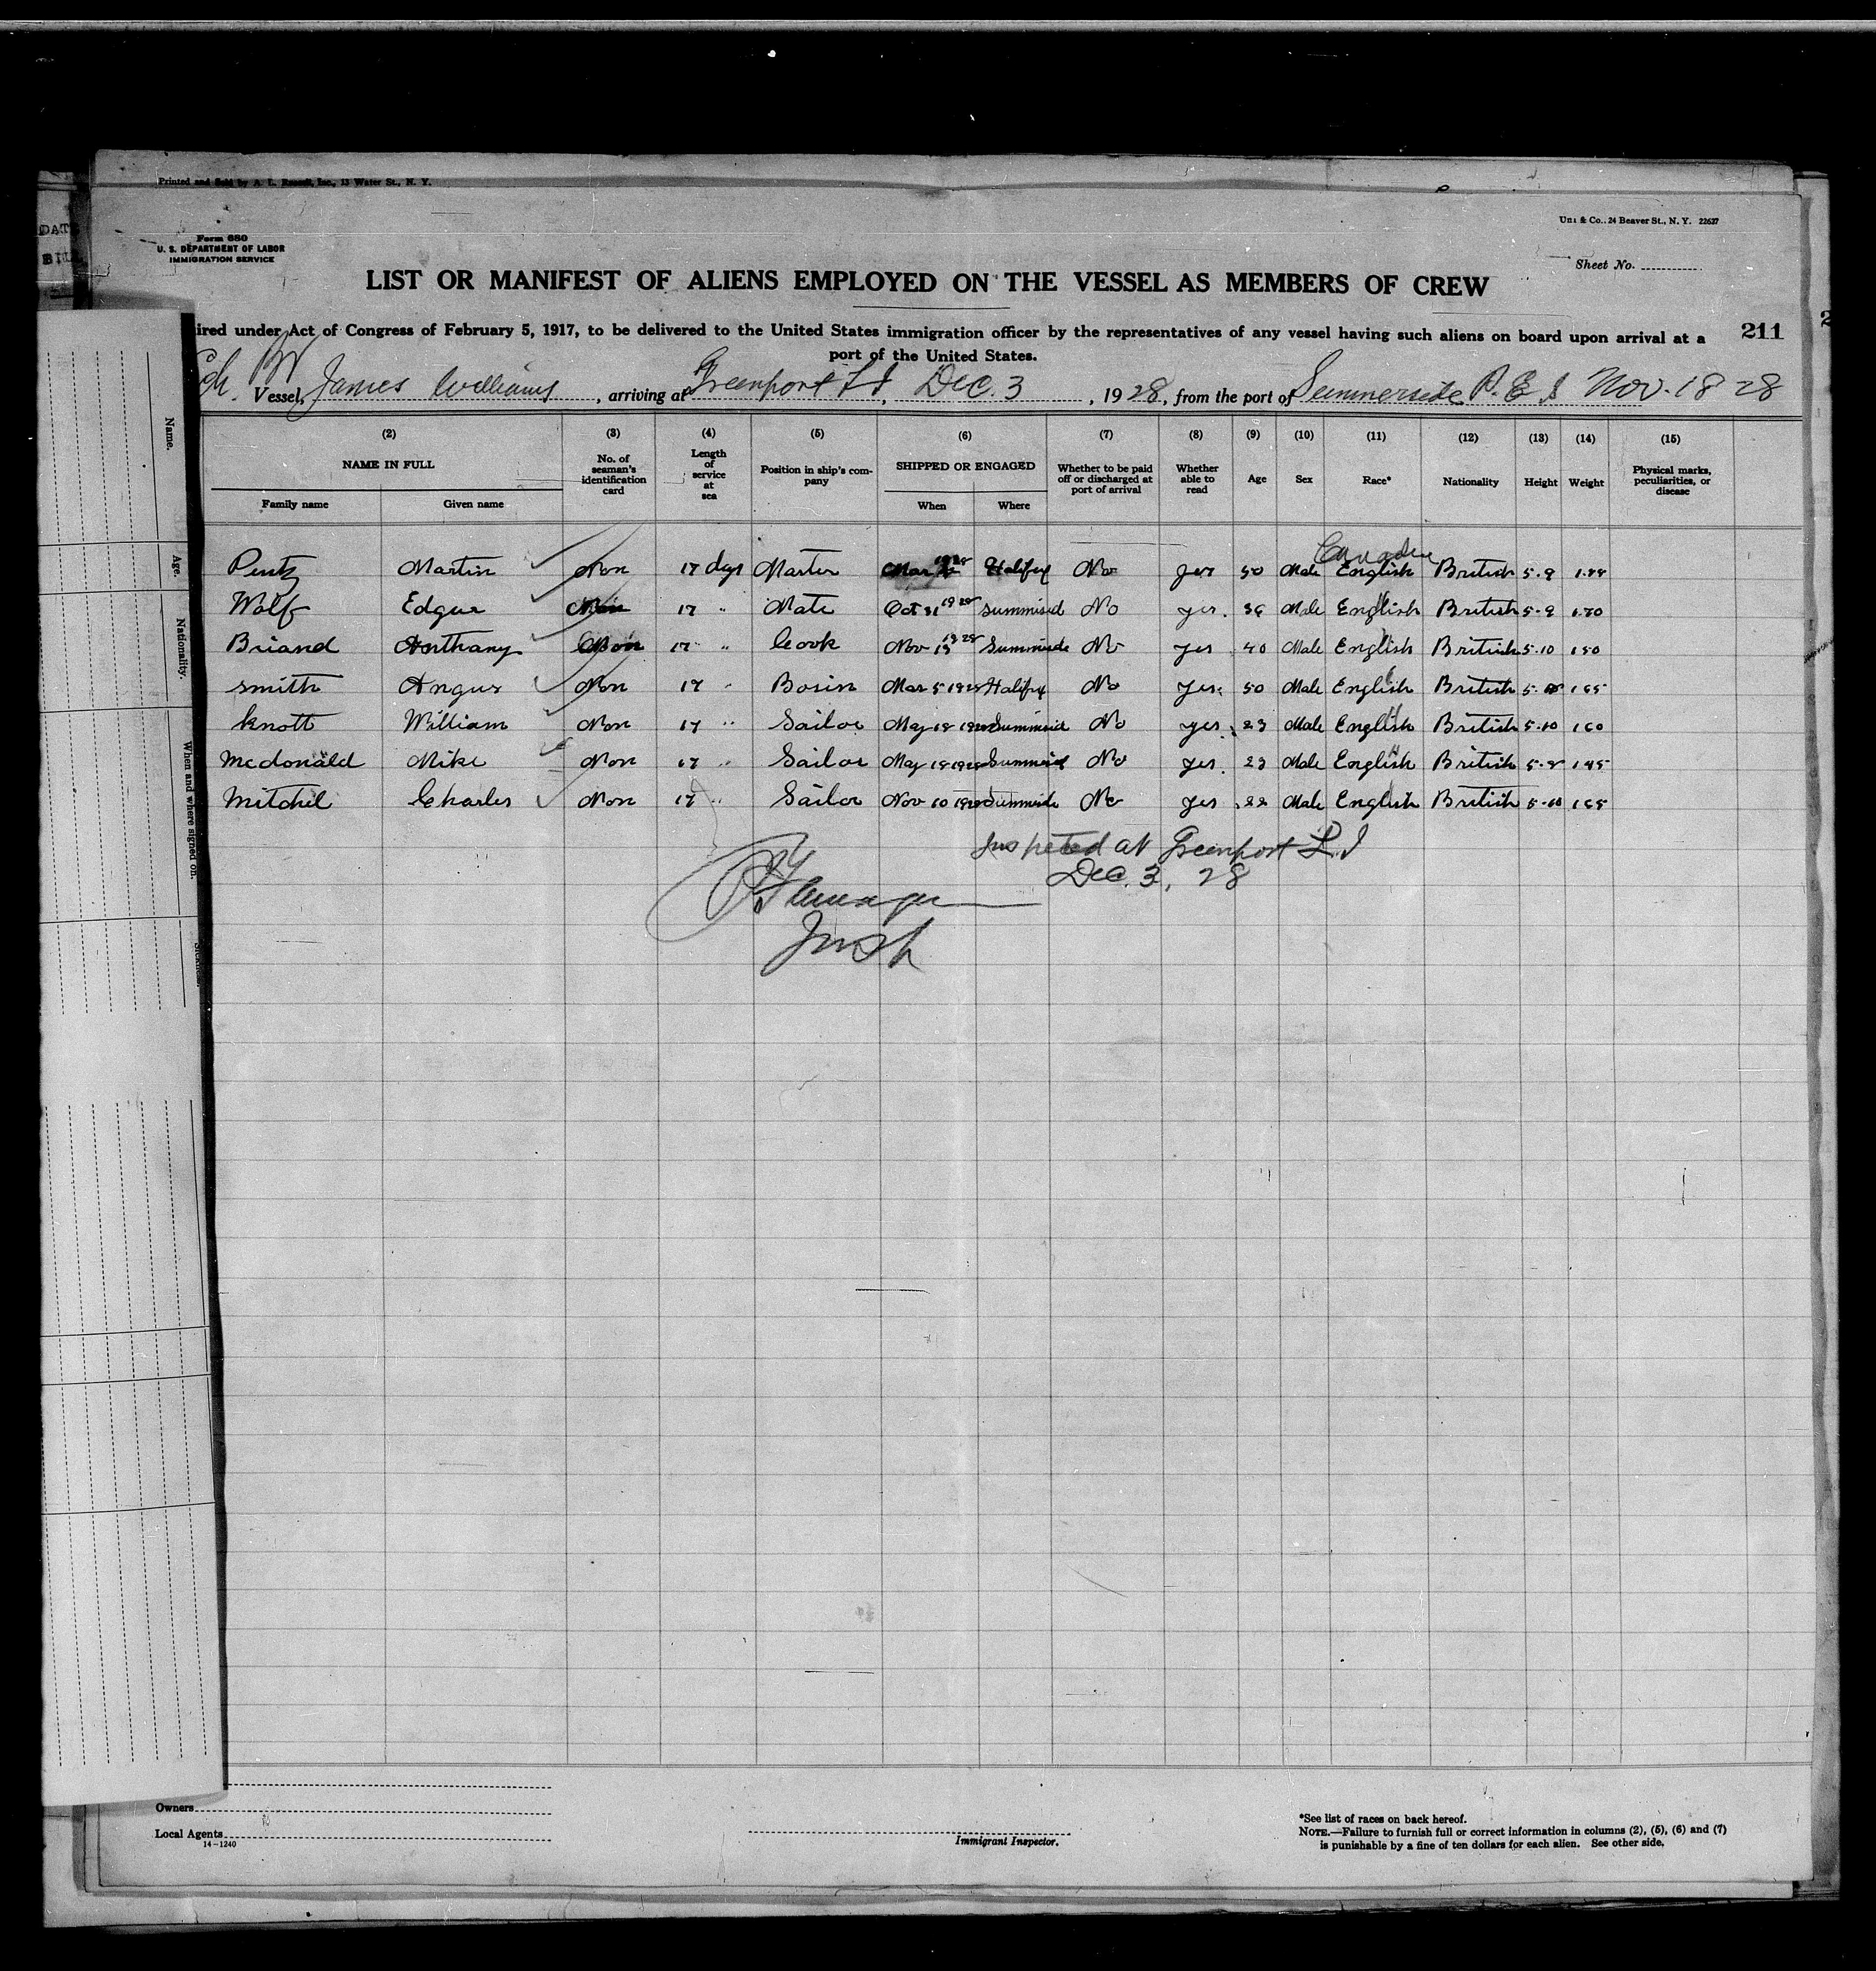 Printed and Sold by A. L. Russell, Inc., 13 Water St., N. Y.
Unz & Co., 24 Beaver St., N. Y. 22627
DATE
BILL
Form 680
U. S. DEPARTMENT OF LABOR
IMMIGRATION SERVICE
Sheet No.
LIST OR MANIFEST OF ALIENS EMPLOYED ON THE VESSEL AS MEMBERS OF CREW
ired under Act of Congress of February 5, 1917, to be delivered to the United States immigration officer by the representatives of any vessel having such aliens on board upon arrival at a
port of the United States.
211
Vessel, James Williams, arriving at Greenport L I, Dec. 3, 1928, from the port of Summerside P. E I Nov. 18 28
(2) (3) (4) (5) (6) (7) (8) (9) (10) (11) (12) (13) (14) (15)
NAME IN FULL No. of seaman's identification card Length of service at sea Position in ship's company SHIPPED OR ENGAGED Whether to be paid off or discharged at port of arrival Whether able to read Age Sex Race* Nationality Height Weight Physical marks, peculiarities, or disease
Family name Given name When Where
Canadian
Pentz Martin Non 17 days Master Mar 1928 Halifax No yes 50 Male English British 5-9
Wolf Edgar Non 17 " Mate Oct 31 1928 Summisid No yes. 36 Male English British 5-9 170
Briand Anthany Non 17 " Cook Nov 15 1928 Summiside No yes 40 Male English British 5-10 150
Smith Angus Non 17 " Bosin Mar 5 1928 Halifax No yes. 50 Male English British 165
Knott William Non 17 " Sailor May 18 1928 Summisid No yes. 23 Male English British 5-10 160
Mcdonald Mike Non 17 " Sailor May 18 1928 Summisid No yes. 23 Male English British 5-8 145
Mitchel Charles Non 17 " Sailor Nov 10 1928 Summiside No yes 22 Male English British 5-10 165
Inspected at Greenport L.I
Dec. 3, 28
Insp
Name.
Age.
Nationality.
When and where signed on.
Owners
Local Agents
14-1240
Immigrant Inspector.
*See list of races on back hereof.
NOTE.—Failure to furnish full or correct information in columns (2), (5), (6) and (7)
is punishable by a fine of ten dollars for each alien. See other side.